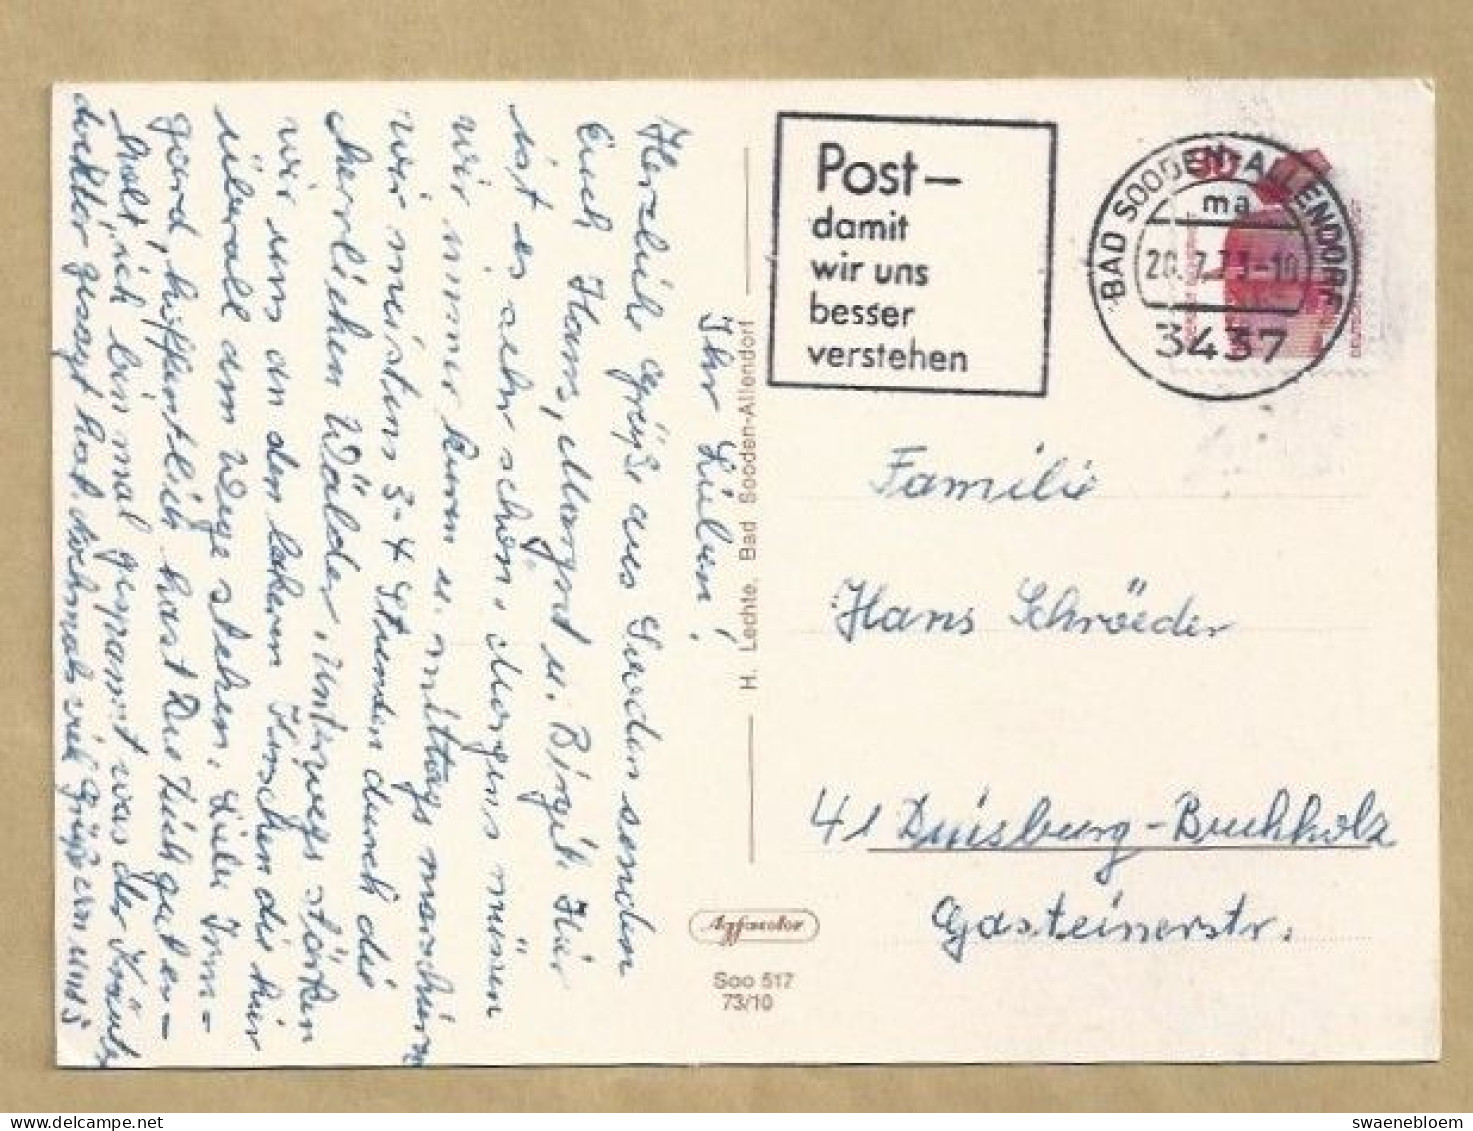 Ihr Lieben!
Herzliche Grüße aus Sooden senden
Euch Hans, Margret u. Birgit. Hier
ist es sehr schön. Morgens müssen
wir immer kuren u. mittags marschieren
wir meistens 3-4 Stunden durch die
herrlichen Wälder. Unterwegs stärken
wir uns an den leckeren Kirschen die hier
überall am Wege stehen. Liebe Irm-
gard, hoffentlich hast Du Dich gut er-
holt, ich bin mal gespannt was der
doktor gesagt hat. Nochmals viele Grüße von uns
H. Lechte, Bad Sooden-Allendorf
Soo 517
73/10
Post –
damit
wir uns
besser
verstehen
BAD SOODEN-ALLENDORF
ma
20.7.73-10
3437
Familie
Hans Schröeder
41 Duisburg-Buchholz
Gasteinerstr.
swaenebloem